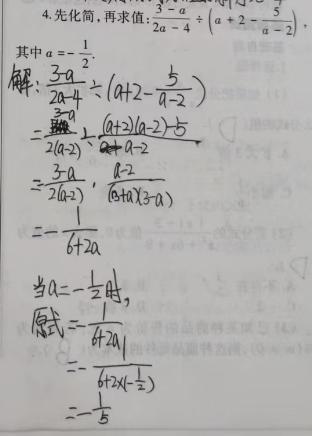 4.先化简,再求值:\frac{3-a}{2a-4}÷(a+2-\frac{5}{a-2}),
其中a=-\frac{1}{2}.
解:\frac{3-a}{2a-4}÷(a+2-\frac{5}{a-2})
=\frac{3-a}{2(a-2)}÷\frac{(a+2)(a-2)-5}{a-2}
=\frac{3-a}{2(a-2)}·\frac{a-2}{(3+a)(3-a)}
=-\frac{1}{6+2a}
当a=-\frac{1}{2}时,
原式=-\frac{1}{6+2a}
=-\frac{1}{6+2×(-\frac{1}{2})}
=-\frac{1}{5}